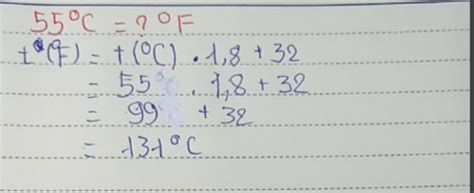 55°C = ? °F
t°(°F) = t(°C) . 1,8 + 32
= 55 . 1,8 + 32
= 99 + 32
= 131°C